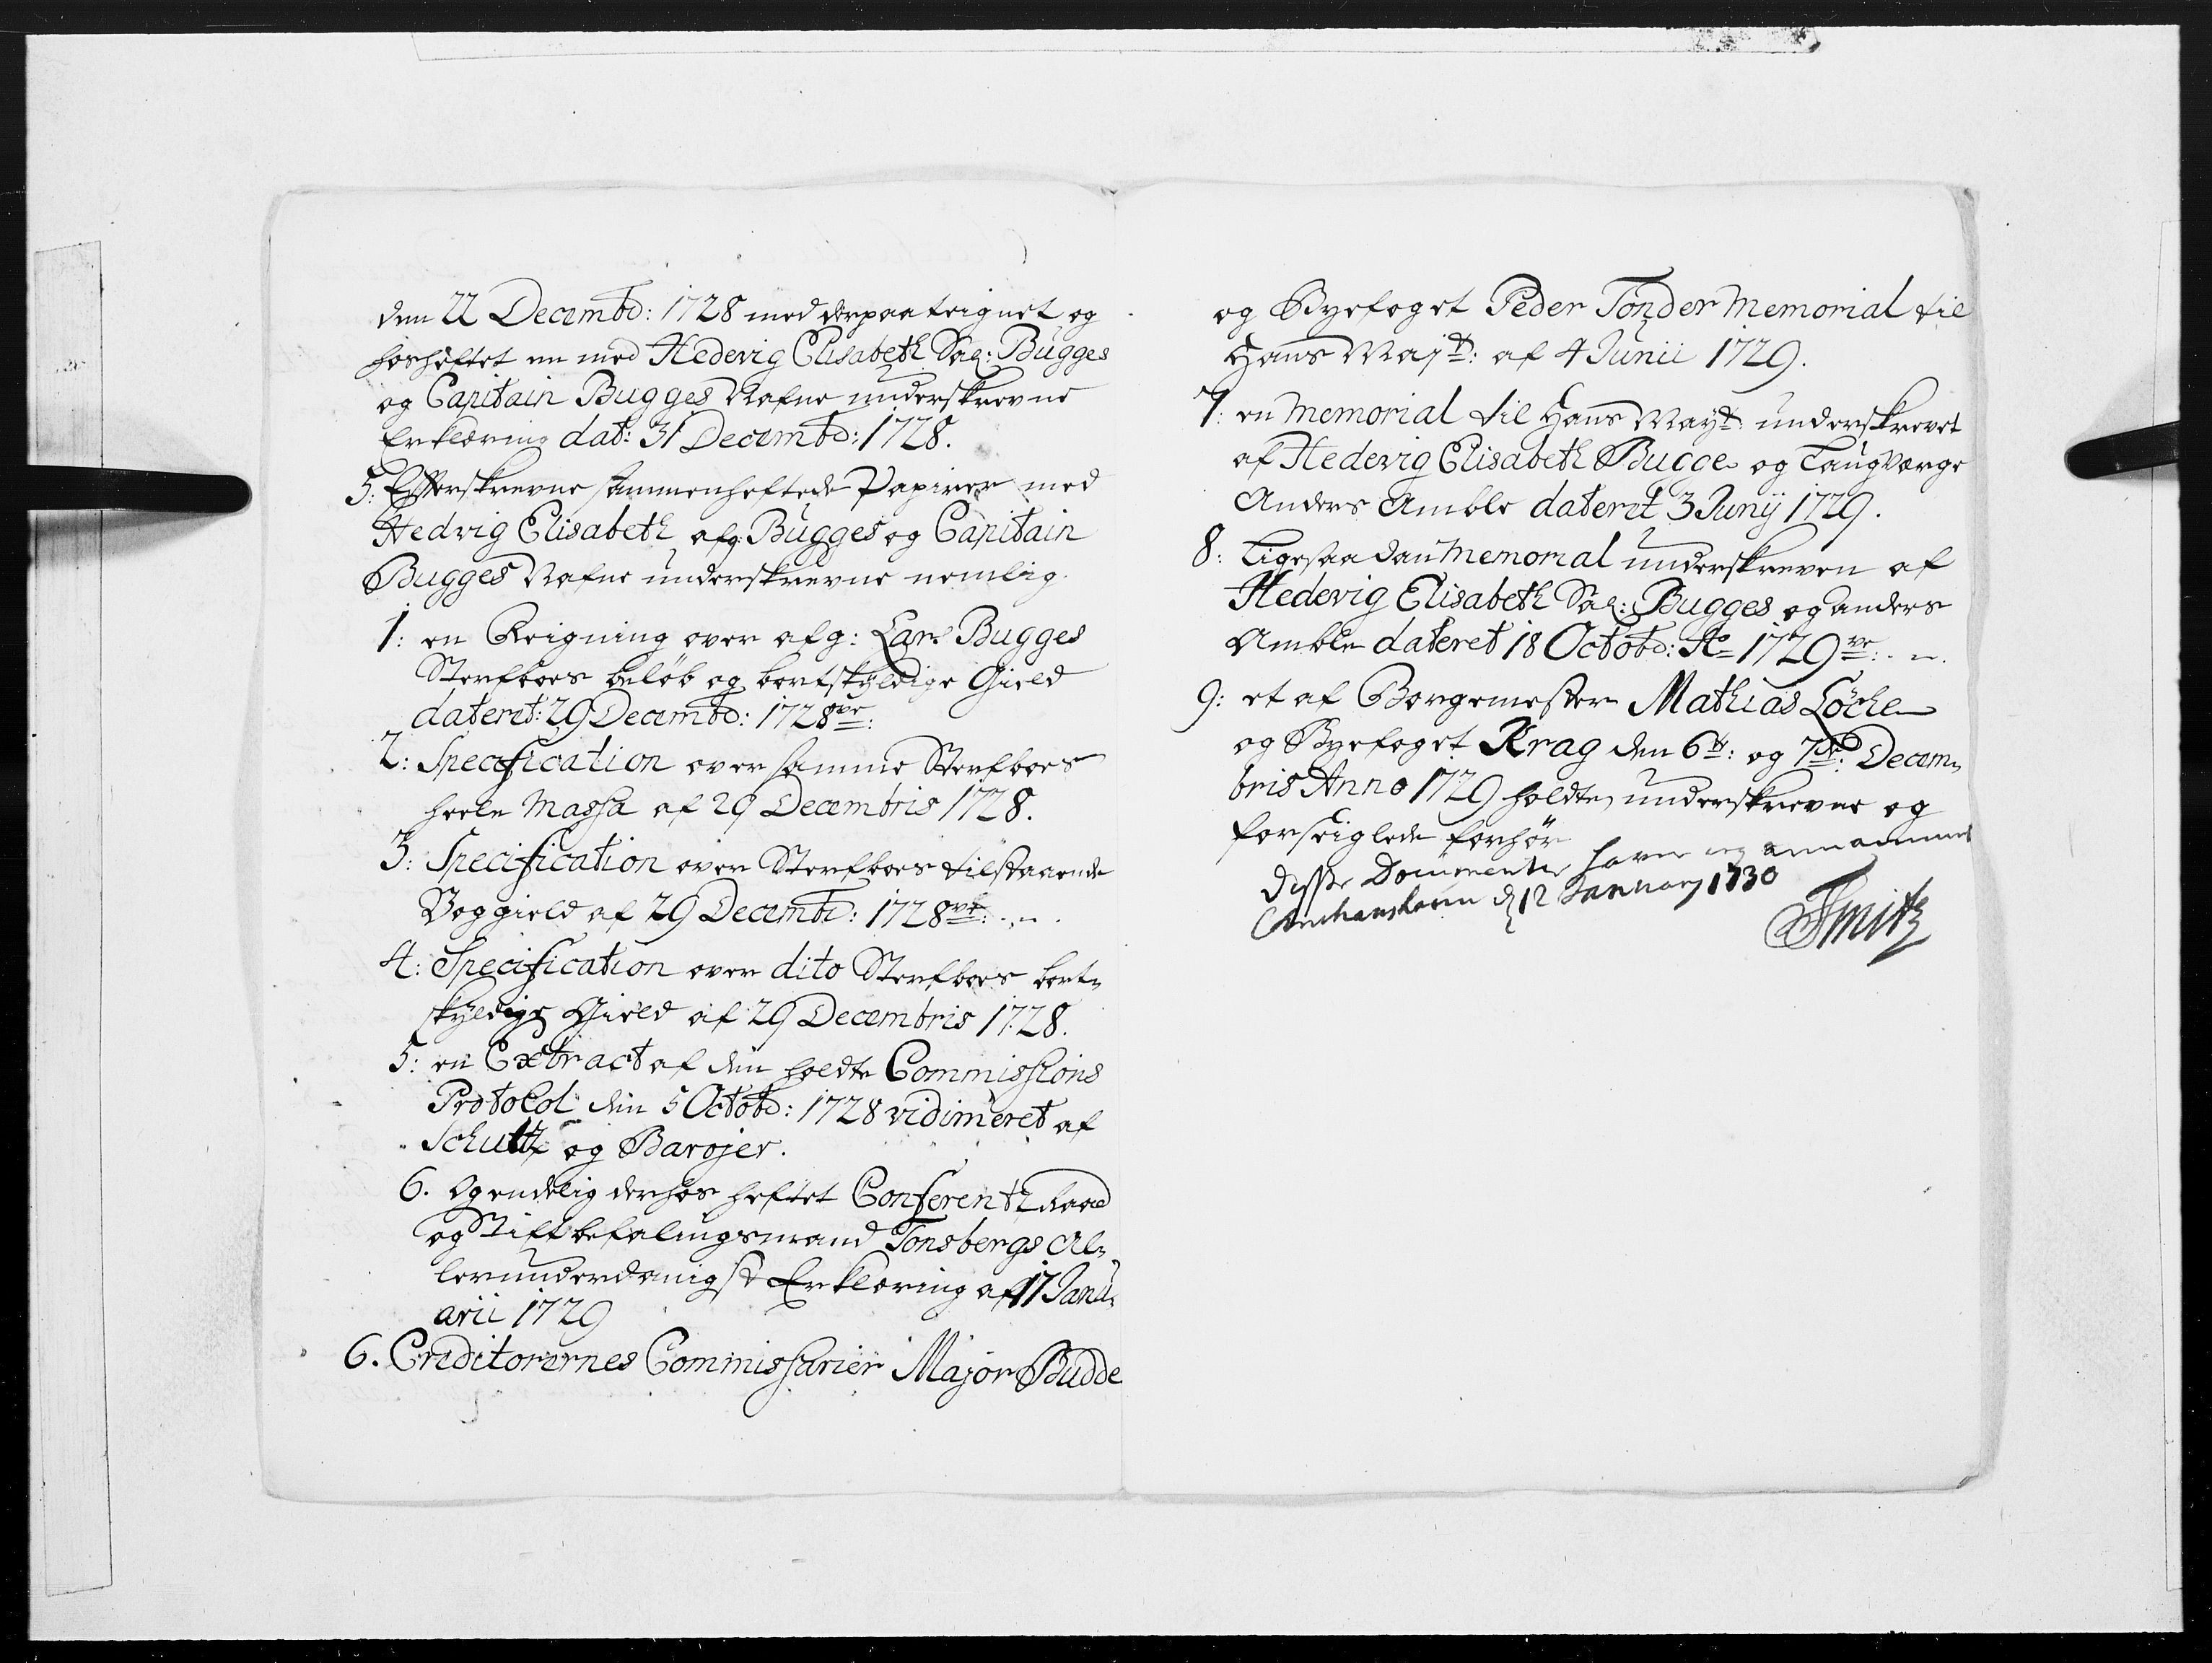 den 22 Decembr: 1728 med derpaa teignet og
hosheftet en med Hedevig Elisabeth Sal: Bugges
og Capitain Bugges Nafne underskrevne
Erklæring dat: 31 Decembr: 1728.
5: Efterskrevne sammenheftede Papirer med
Hedvig Elisabeth afg: Bugges og Capitain
Bugges Nafne underskrevne nemlig
1: en Reigning over afg: Lars Bugges
Sterfboes beløb og bortskyldige Gield
dateret: 29 Decembr: 1728ve:
2: Specification over samme Sterfboes
heele Massa af 29 Decembris 1728.
3: Specification over Sterfboes tilstaaende
Boggield af 29 Decembr: 1728ve:
4: Specification over dito Sterfboes bort-
skyldige Gield af 29 Decembris 1728.
5: en Extract af den holdte Commissions
Protocol den 5 Octobr: 1728 vidimeret af
Schultz og Barojer.
6. Og endelig derhos heftet Conferentz Raad
og Stiftbefalingsmand Tonsbergs Al-
lerunderdanigst Erklæring af 17 Janu-
arii 1729
6. Creditorernes Commissarier Major Budde
og Byefoget Peder Tonder Memorial til
Hans Majt: af 4 Junii 1729.
7: en Memorial til Hans Mayt: underskrevet
af Hedevig Elisabeth Bugge og Laugværge
Anders Amble dateret 3 Junij 1729.
8: Ligesaadan Memorial underskreven af
Hedevig Elisabeth Sal: Bugges og Anders
Amble dateret 18 Octobr: Ao 1729ve:
9: et af Borgemester Mathias Löche
og Byefoget Krag den 6te: og 7de: Decem-
bris Anno 1729 holdte, underskrevne og
forseiglede forhör
disse Documenter haver jeg annammet
d 12 January 1730
Smith